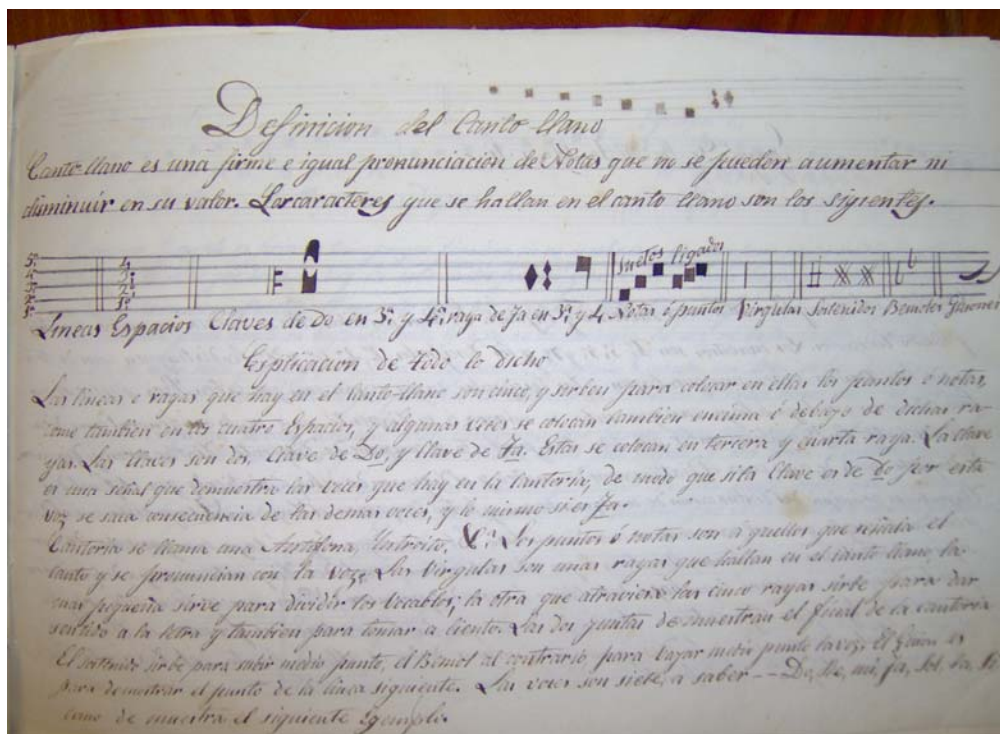 Definicion del Canto llano
Canto-llano es una firme e igual pronunciacion de Notas que no se pueden aumentar ni
disminuir en su valor. Los caracteres que se hallan en el canto llano son los siguentes.
5ª 4ª 3ª 2ª 1ª 4 3 2 1ª sueltos ligados
Lineas Espacios Claves de Do en 3ª y 4ª raya de Fa en 3ª y 4 Notas ó puntos Virgulas Sostenidos Bemoles Guiones
Esplicacion de todo lo dicho
Las lineas o rayas que hay en el Canto-llano son cinco, y sirben para colocar en ellas los puntos ó notas,
como tambien en los cuatro Espacios, y algunas veces se colocan tambien encima ó debajo de dichas ra-
yas. Las llaves son dos, Clave de Do, y llave de Fa. Estas se colocan en tercera y cuarta raya. La clave
es una señal que demuestra las voces que hay en la Cantoria, de modo que si la Clave es de Do por esta
voz se saca consecuencia de las demas voces, y lo mismo si es Fa.
Cantoria se llama una Antifona, Yntroito, &ª Los puntos ó notas son aquellos que señala el
canto y se pronuncian con la voz. Las Virgulas son unas rayas que hallan en el canto llano, la
mas pequeña sirve para dividir los Vocablos; la otra que atraviesa las cinco rayas sirbe para dar
sentido a la letra y tambien para tomar a liento. Las dos juntas demuestran el final de la cantoria
El sostenido sirbe para subir medio punto, el Bemol al contrario, para bajar medio punto la voz. El Guion es
para demostrar el punto de la linea siguiente. Las voces son siete, a saber -- Do, Re, mi, fa, sol, la, si
como demuestra el siguiente Egemplo.